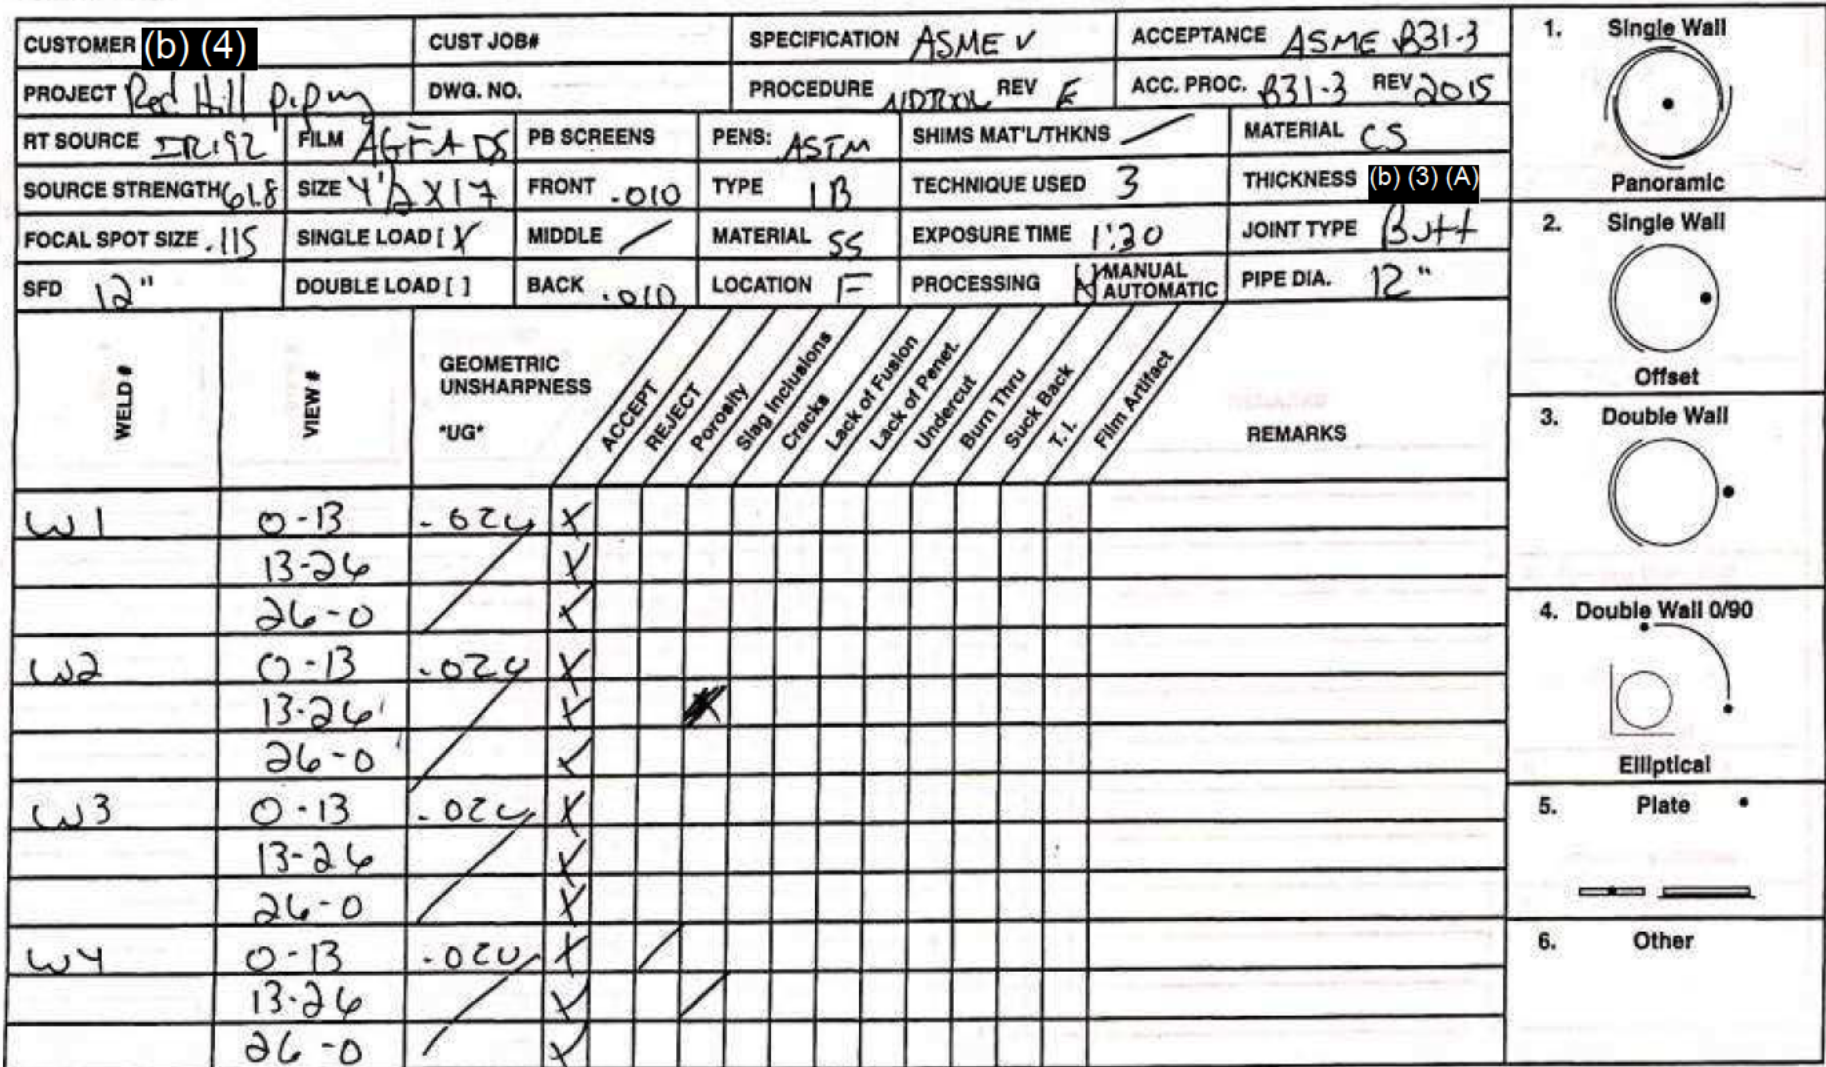 CUSTOMER (b) (4) CUST JOB# SPECIFICATION ASME V ACCEPTANCE ASME B31-3
PROJECT Red Hill piping DWG. NO. PROCEDURE REV E ACC. PROC. B31-3 REV 2015
RT SOURCE IR192 FILM AGFA D5 PB SCREENS PENS: ASTM SHIMS MAT'L/THKNS / MATERIAL CS
SOURCE STRENGTH 61.8 SIZE 4 1/2 X 17 FRONT .010 TYPE 1B TECHNIQUE USED 3 THICKNESS (b) (3) (A)
FOCAL SPOT SIZE .115 SINGLE LOAD [X MIDDLE / MATERIAL SS EXPOSURE TIME 1:30 JOINT TYPE Butt
SFD 12" DOUBLE LOAD [ ] BACK .010 LOCATION F PROCESSING MANUAL AUTOMATIC PIPE DIA. 12"
WELD # VIEW # GEOMETRIC UNSHARPNESS *UG* ACCEPT REJECT Porosity Slag Inclusions Cracks Lack of Fusion Lack of Penet. Undercut Burn Thru Suck Back T. I. Film Artifact REMARKS
W1 0-13 .020 X
13-26 X
26-0 X
W2 0-13 .020 X
13-26 X
26-0 X
W3 0-13 .020 X
13-26 X
26-0 X
W4 0-13 .020 X /
13-26 X /
26-0 X
1. Single Wall
Panoramic
2. Single Wall
Offset
3. Double Wall
4. Double Wall 0/90
Elliptical
5. Plate
6. Other